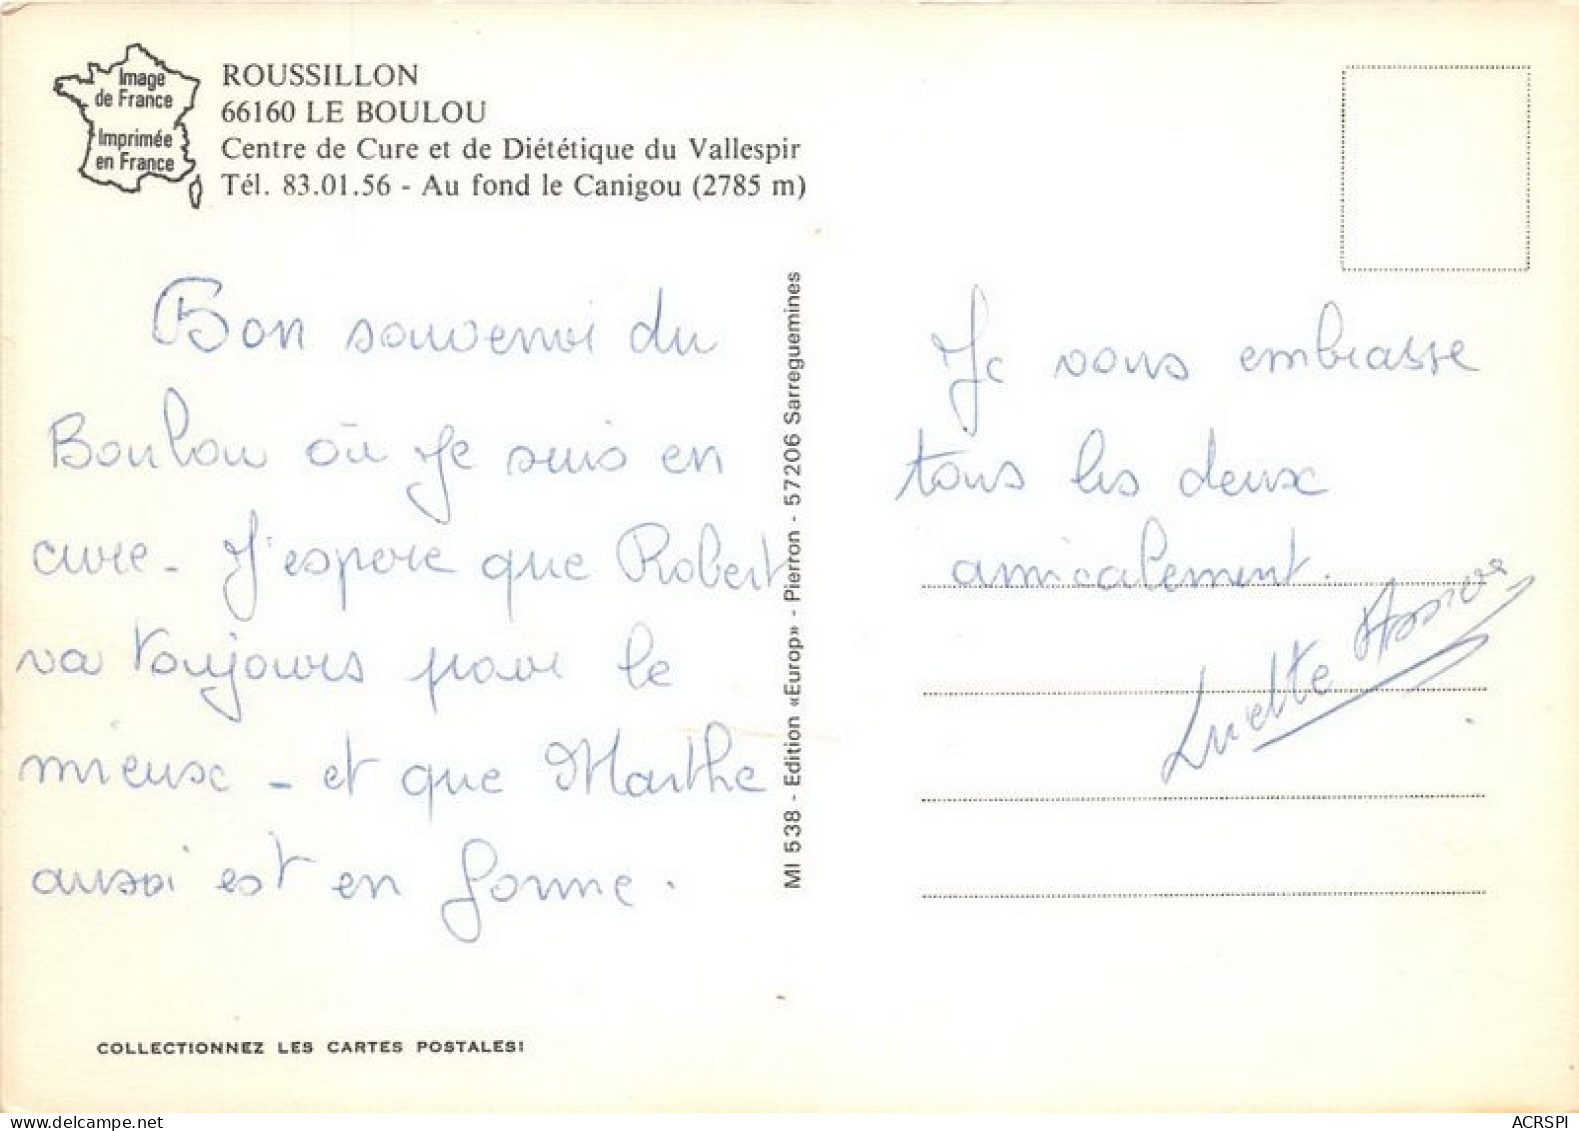 Image
de France
Imprimée
en France
ROUSSILLON
66160 LE BOULOU
Centre de Cure et de Diététique du Vallespir
Tél. 83.01.56 - Au fond le Canigou (2785 m)
Bon souvenir du
Boulou où je suis en
cure - J'espère que Robert
va toujours pour le
mieux - et que Marthe
aussi est en forme.
MI 538 - Edition «Europ» - Pierron - 57206 Sarreguemines
Je vous embrasse
tous les deux
amicalement.
Lucette
COLLECTIONNEZ LES CARTES POSTALES!
ACRSPI